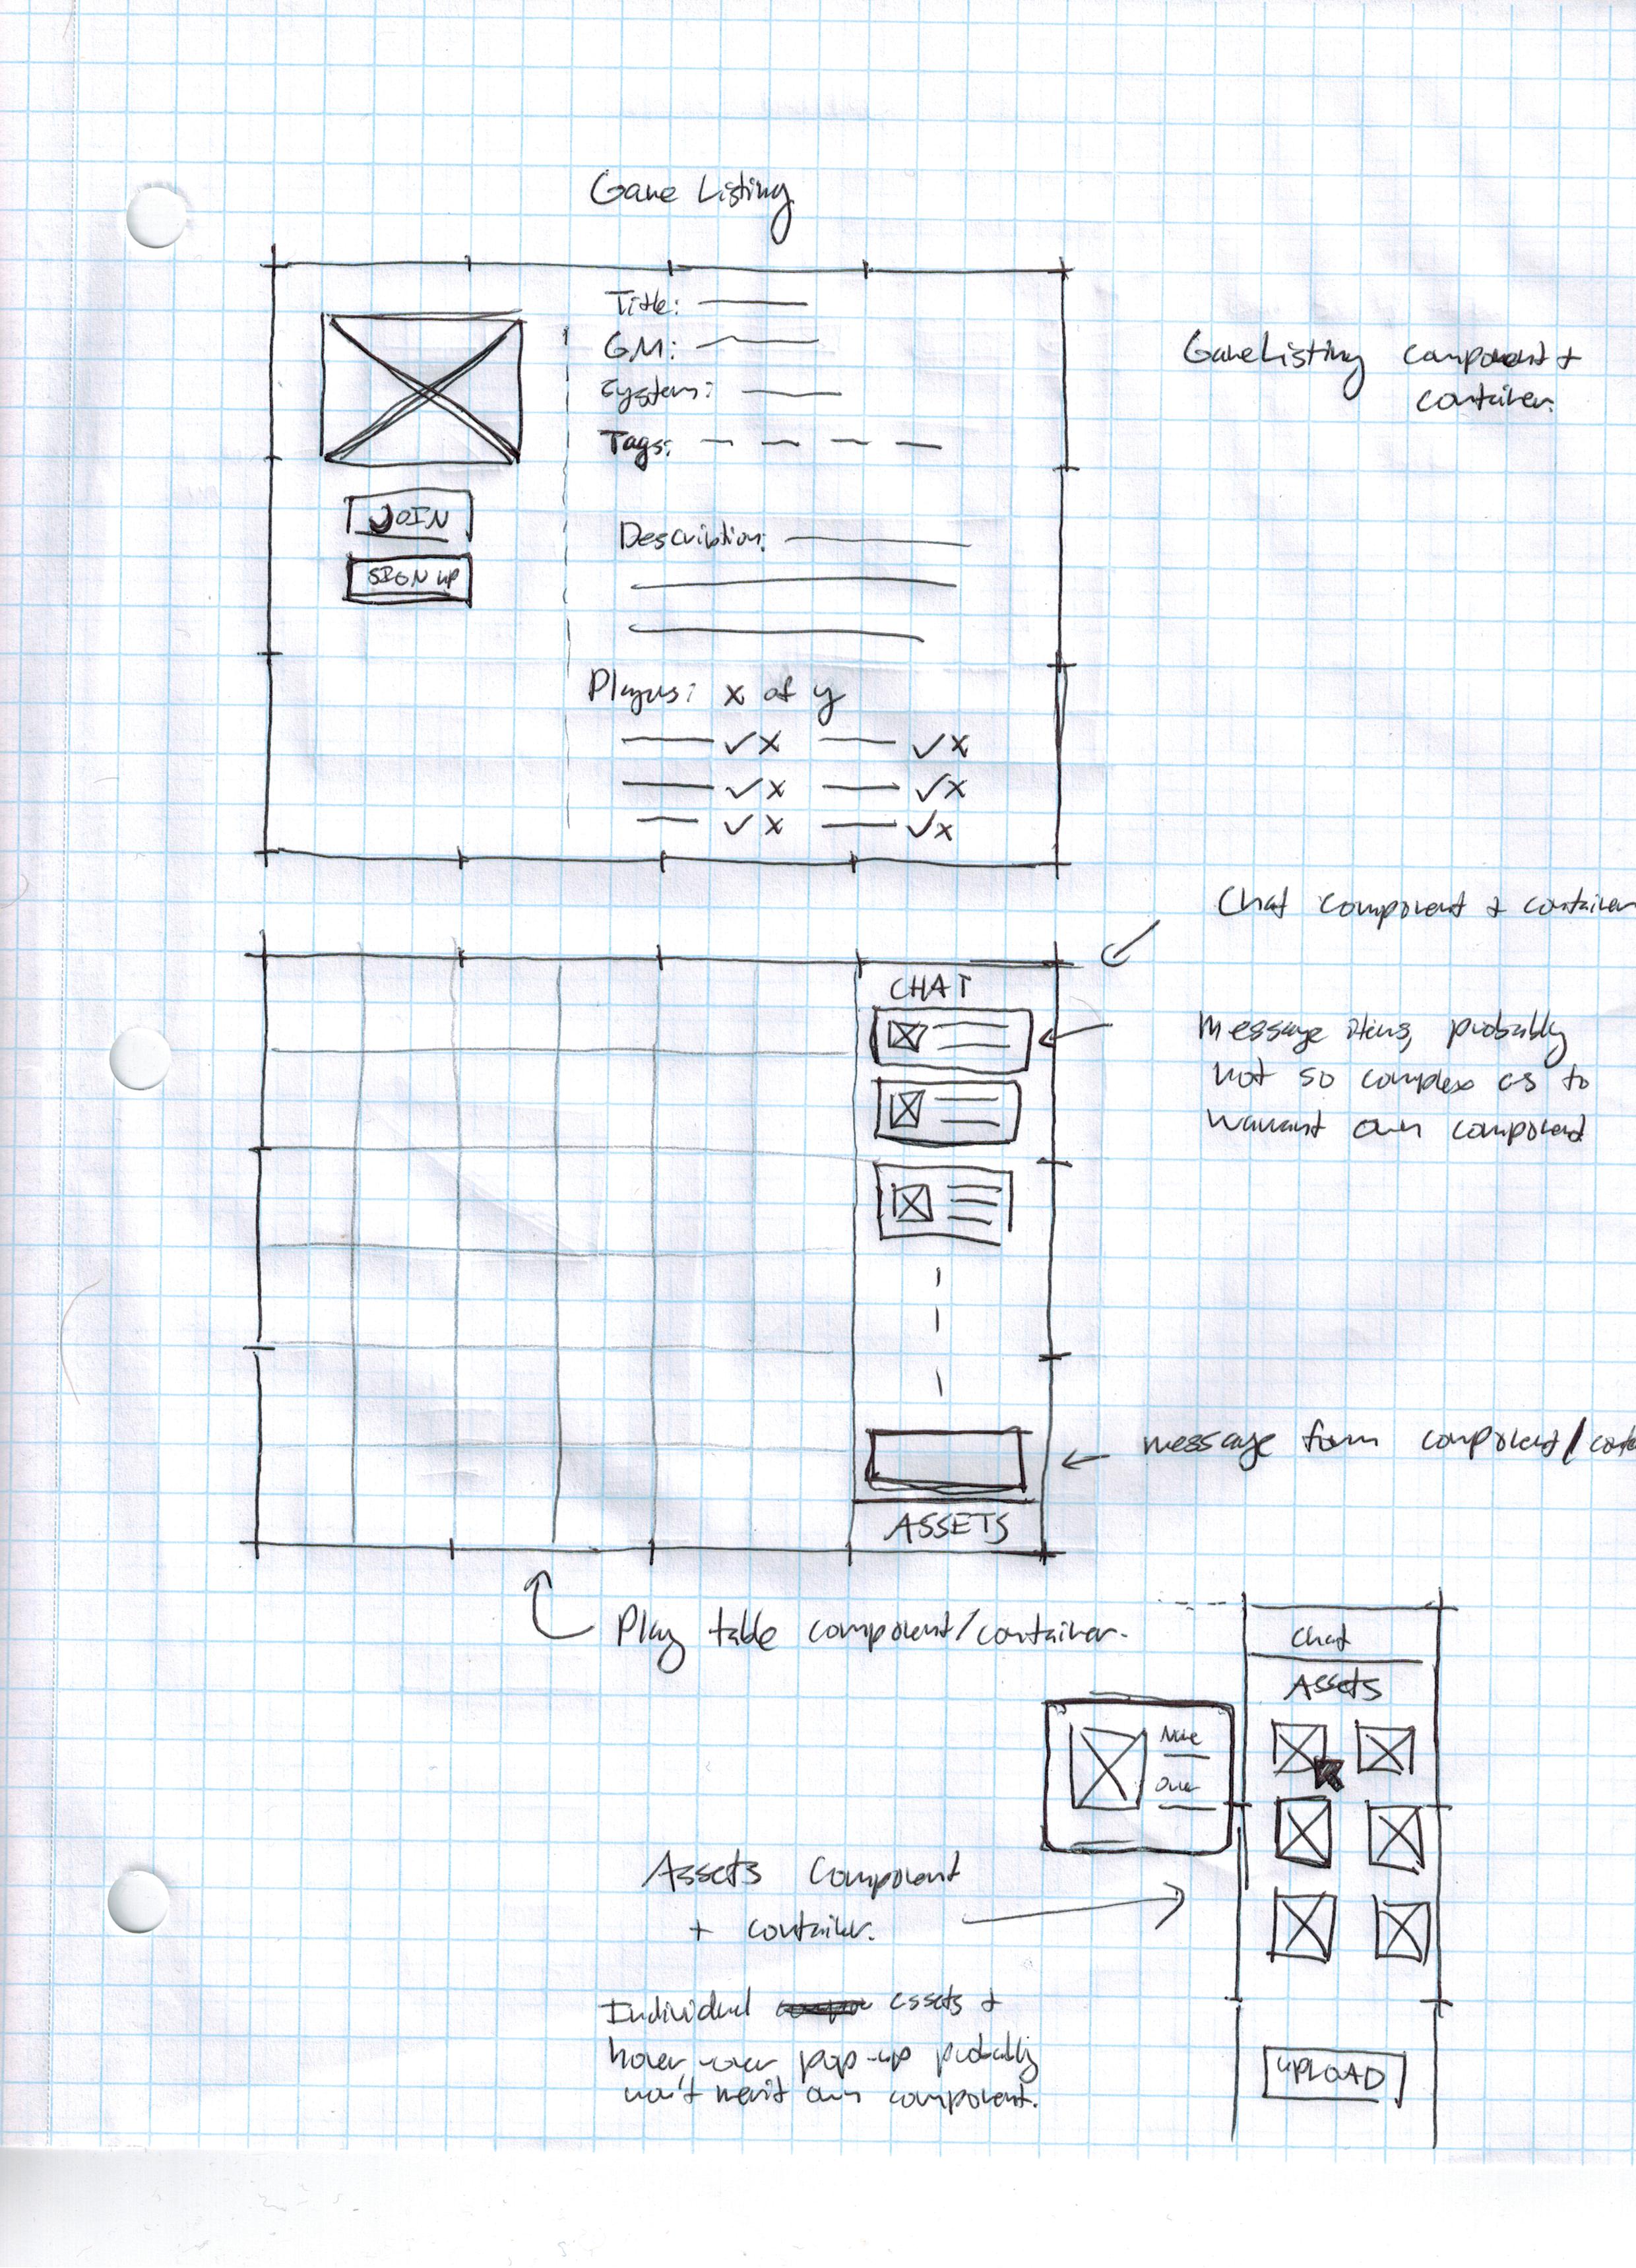 Game Listing
Title:
GM:
System:
Tags:
GameListing component +
container.
JOIN
SIGN UP
Description:
Players: x of y
✓ x ✓ x
✓ x ✓ x
✓ x ✓ x
Chat component + container
CHAT
Message items, probably
not so complex as to
warrant own component
message form component/
ASSETS
Play table component/container.
Chat
Assets
Name
Owner
Assets Component
+ container.
Individual assets +
hover-over pop-up probably
won't merit own component.
UPLOAD